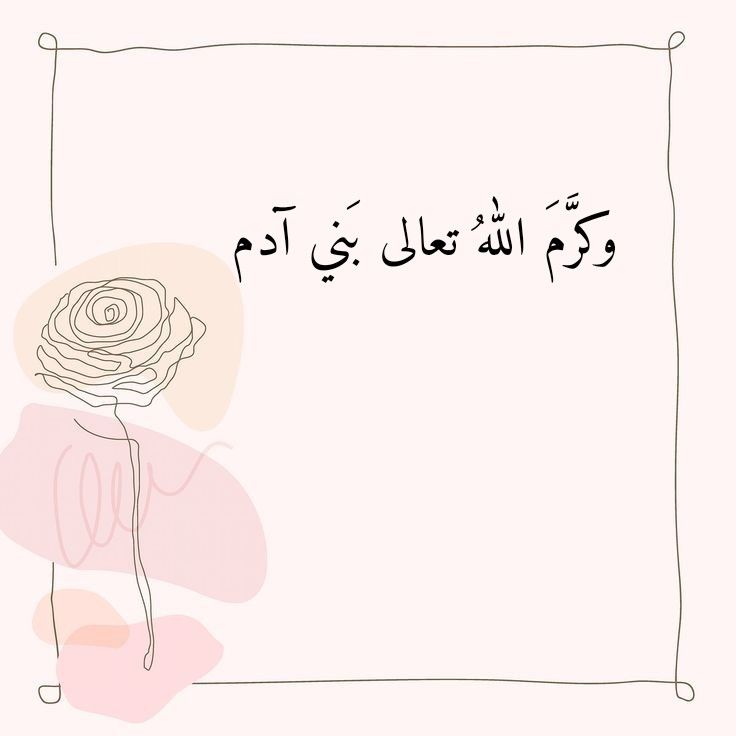 وكرَّمَ اللهُ تعالى بَني آدم